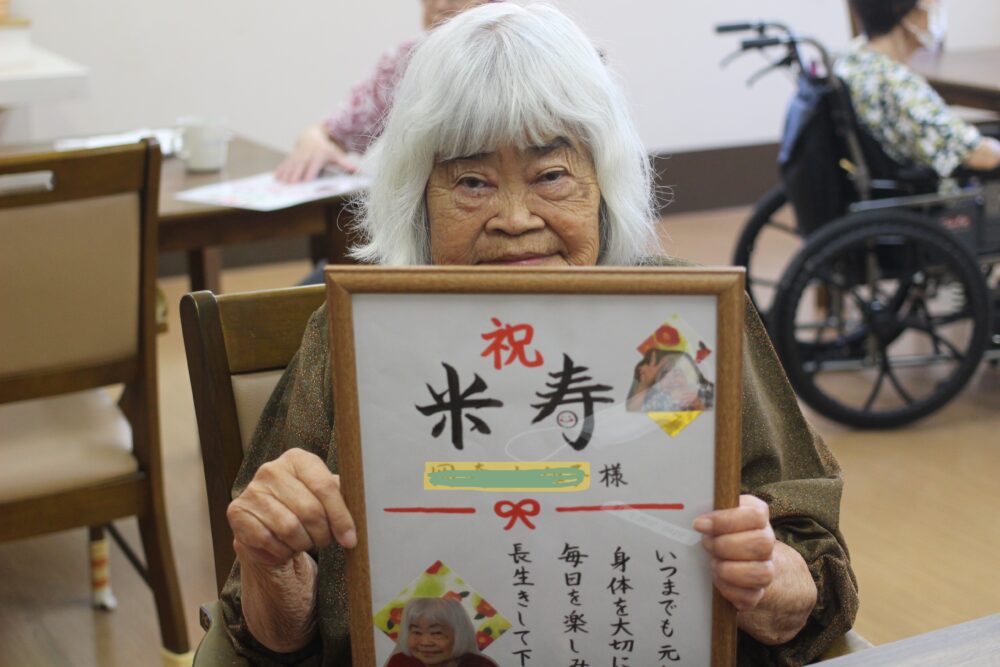 祝
米寿
様
いつまでも元
身体を大切に
毎日を楽しみ
長生きして下